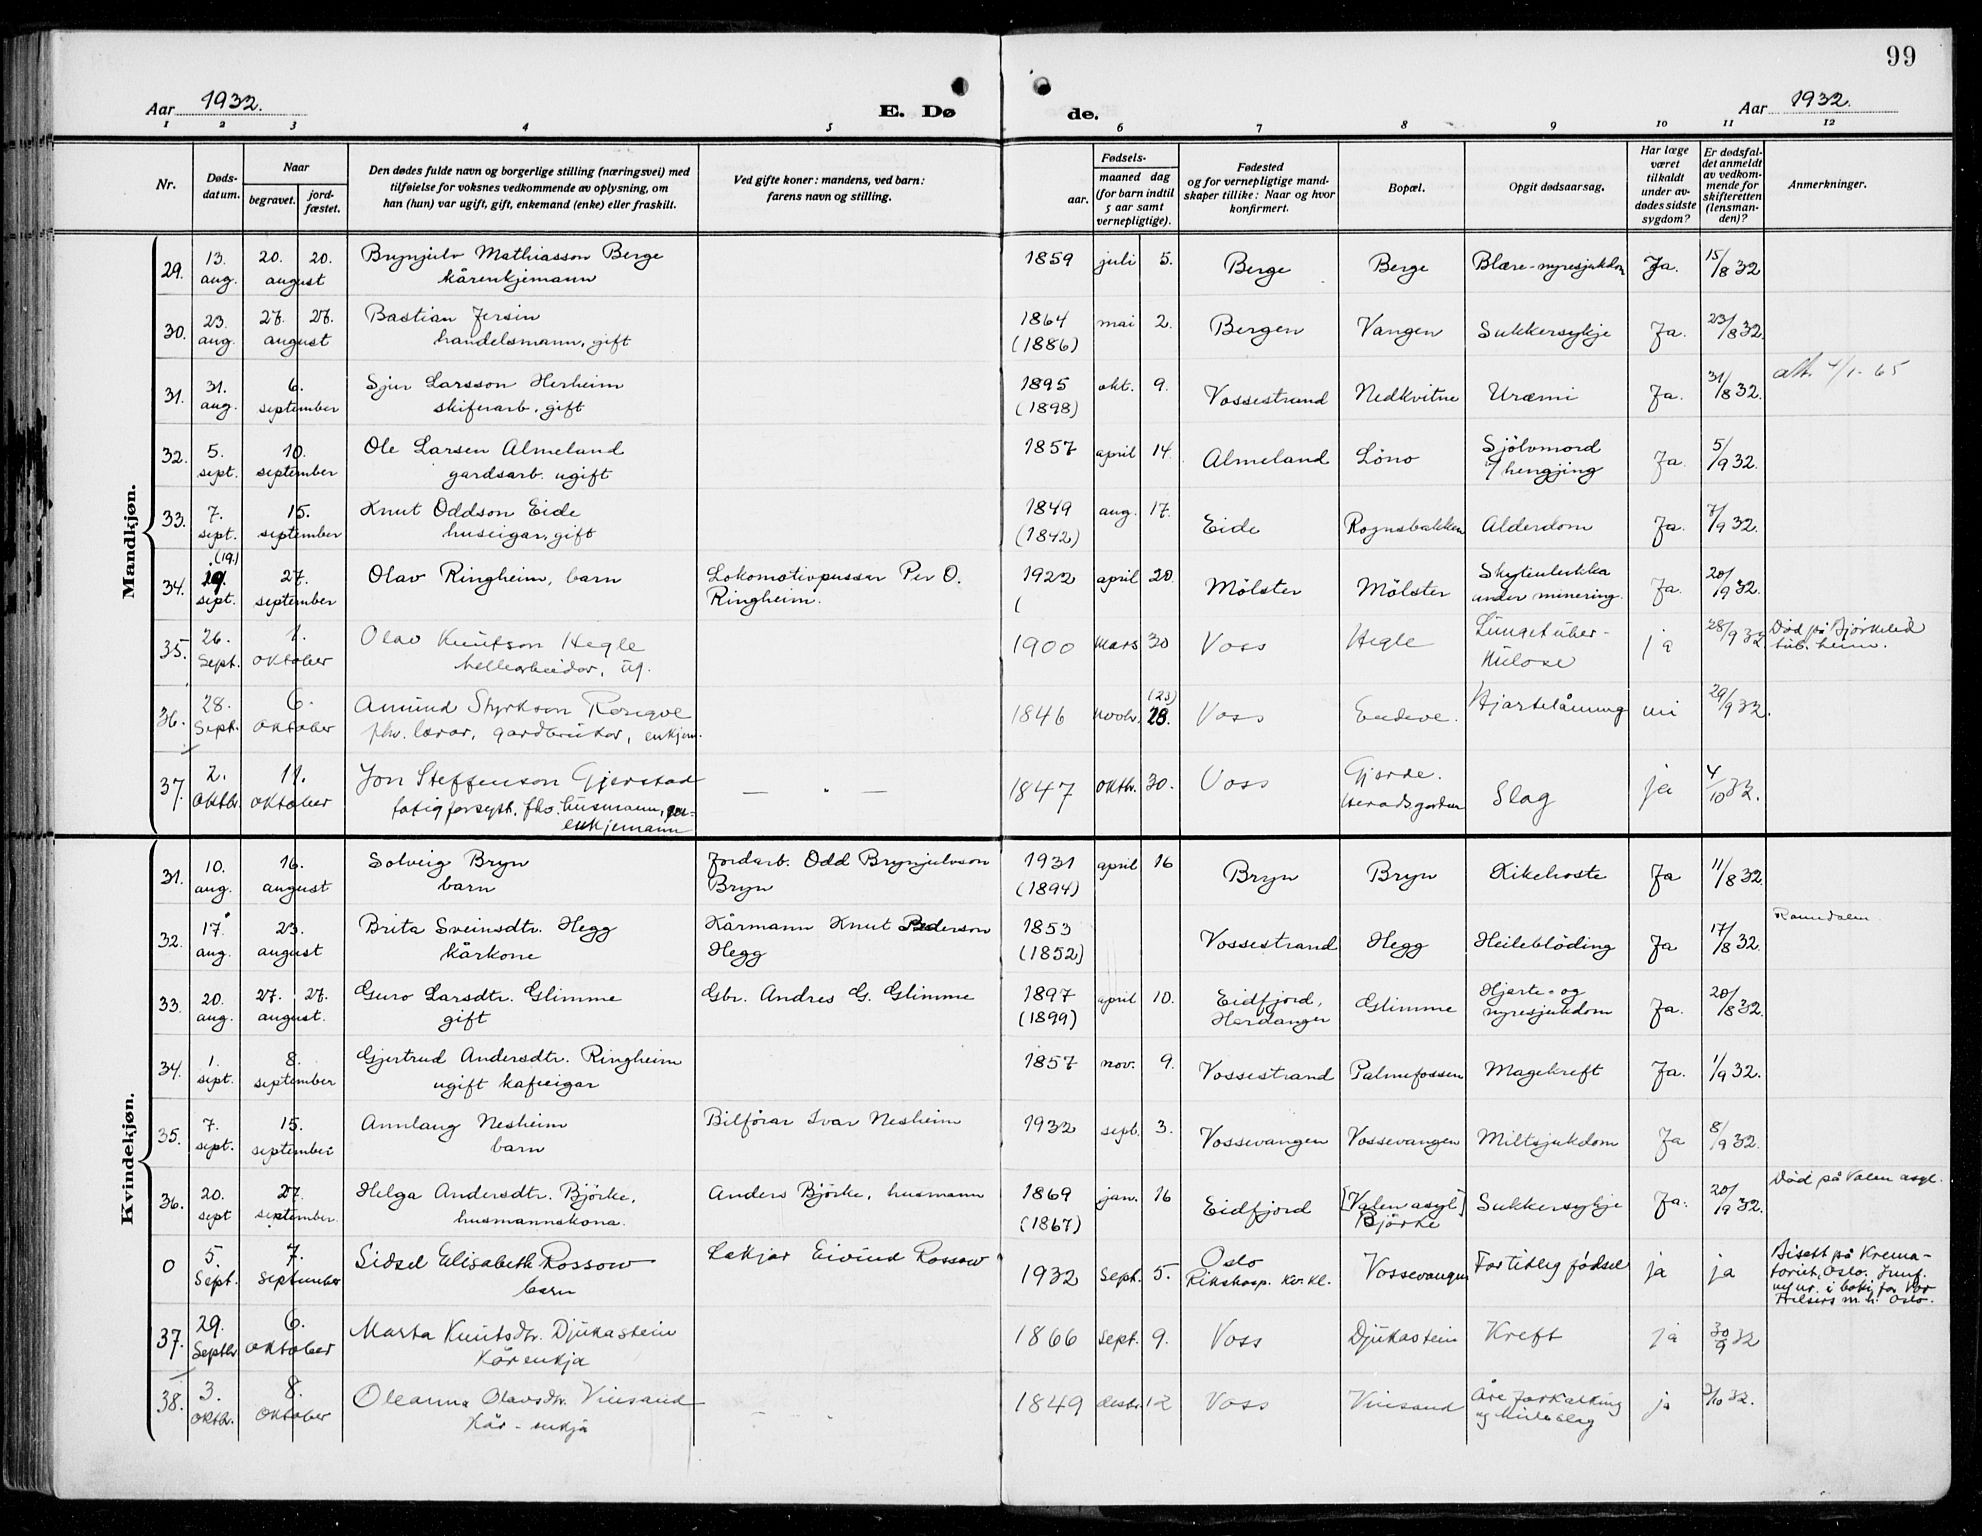 99
Aar 1932.
E. Dø
de.
Aar 1932.
1 2 3 4 5 6 7 8 9 10 11 12
Nr.
Døds-
datum.
Naar
begravet.
jord-
fæstet.
Den dødes fulde navn og borgerlige stilling (næringsvei) med
tilføielse for voksnes vedkommende av oplysning, om
han (hun) var ugift, gift, enkemand (enke) eller fraskilt.
Ved gifte koner: mandens, ved barn:
farens navn og stilling.
Fødsels-
aar.
maaned dag
(for barn indtil
5 aar samt
vernepligtige).
Fødested
og for vernepligtige mand-
skaper tillike: Naar og hvor
konfirmert.
Bopæl.
Opgit dødsaarsag.
Har læge
været
tilkaldt
under av-
dødes sidste
sygdom?
Er dødsfal-
det anmeldt
av vedkom-
mende for
skifteretten
(lensman-
den)?
Anmerkninger.
Mandkjøn.
29. 13. 20. 20. Brynjulv Mathiasson Berge 1859 juli 5. Berge Berge Blære-nyresjukdom Ja. 15/8 32
aug. august kårenkjemann
30. 23. 27. 27. Bastian Jersin 1864 mai 2. Bergen Vangen Sukkersykje Ja. 23/8 32.
aug. august handelsmann, gift (1886)
31. 31. 6. Sjur Larsson Herheim 1895 okt. 9. Vossestrand Nedkvitne Uræmi Ja. 31/8 32. att. 4/1-65
aug. september skiferarb. gift (1898)
32. 5. 10. Ole Larsen Almeland 1857 april 14. Almeland Löno Sjölvmord Ja. 5/9 32.
sept. september gardsarb. ugift v/ hengjing
33. 7. 15. Knut Oddson Eide 1849 aug. 17. Eide Rognsbakken Alderdom Ja. 7/9 32.
sept. september huseigar, gift (1842)
34. (19.) 19. 27. Olav Ringheim, barn Lokomotivpussar Per O. 1922 april 20. Mölster Mölster Skyteulukka Ja. 20/9 32.
sept. september Ringheim. ( under minering.
35. 26. 1. Olav Knutson Hegle 1900 Mars 30 Voss Hegle Lungetuber- ja 28/9 32 Död på Bjørkelid
Sept. oktober hellearbeidar, ug. kulose tub. heim.
36. 28. 6. Amund Styrkson Rongve 1846 novbr. (23) 28. Voss Endeve. Hjartelåming nei 29/9 32.
Sept. oktober fhv. lærar, gardbrukar, enkjem.
37. 2. 11. Jon Steffenson Gjerstad — " — 1847 oktbr. 30. Voss Gjerde. Slag ja 4/10 32.
oktbr. oktober fatigforsyt. fhv. husmann, Heradsgarden
enkjemann
Kvindekjøn.
31. 10. 16. Solveig Bryn Jordarb. Odd Brynjulvson 1931 april 16 Bryn Bryn Kikehoste Ja 11/8 32.
aug. august barn Bryn (1894)
32. 17. 23. Brita Sveinsdtr. Hegg Kårmann Knut Pederson 1853 Vossestrand Hegg Heileblöding Ja 17/8 32. Raundalen
aug. august kårkone Hegg (1852)
33. 20. 27. 27. Guro Larsdtr. Glimme Gbr. Andres G. Glimme 1897 april 10. Eidfjord, Glimme Hjerte- og Ja. 20/8 32.
aug. august. gift (1899) Hardanger nyresjukdom
34. 1. 8. Gjertrud Andersdtr. Ringheim 1857 nov. 9. Vossestrand Palmefossen Magekreft Ja. 1/9 32.
sept. september ugift kafieigar
35. 7. 15. Annlaug Nesheim Bilförar Ivar Nesheim 1932 sept. 3. Vossevangen Vossevangen Miltsjukdom Ja 8/9 32.
sept. september barn
36. 20. 27. Helga Andersdtr. Björke, Anders Björke, husmann 1869 jan. 16 Eidfjord [Valen asyl] Sukkersykje Ja. 20/9 32. Död på Valen asyl.
sept september. husmannskona. (1867) Björke
0 5. 7. Sidsel Elisabeth Rossow Lækjar Eivind Rossow 1932 Sept. 5. Oslo Vossevangen For tidleg fødsel ja ja Bisett på Krema-
Sept. September barn Rikshosp. kv. kl. toriet, Oslo. Innf.
u/ nr. i boki for Vor
Frelsers m.h. Oslo.
37. 29. 6. Marta Knutsdtr. Djukastein 1866 Sept. 9. Voss Djukastein Kreft ja 30/9 32
Septbr oktober Kårenkja
38. 3. 8. Oleanna Olavsdtr. Vinsand — " 1849 desbr. 12 Voss Vinsand Åreforkalking ja 3/10 32.
oktbr. oktober Kår-enkja og hileslag